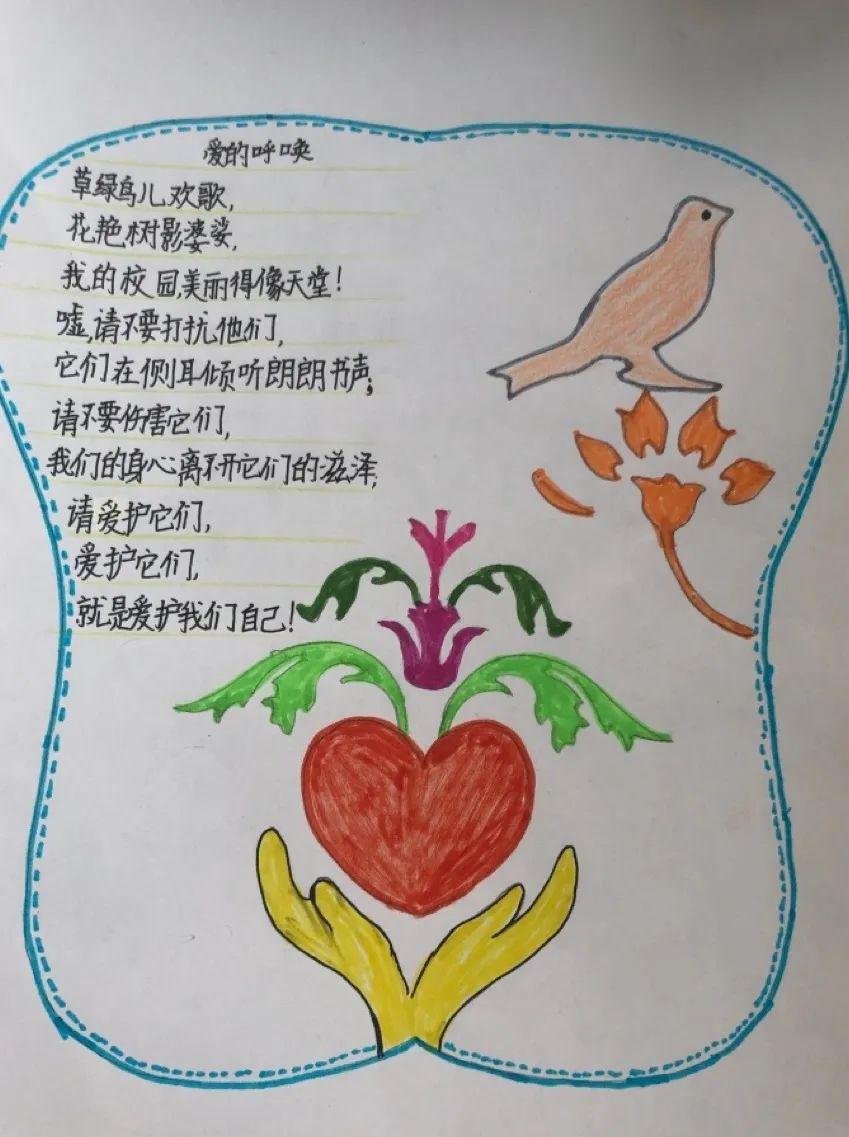 爱的呼唤
草绿鸟儿欢歌,
花艳树影婆娑,
我的校园,美丽得像天堂!
嘘,请不要打扰他们,
它们在侧耳倾听朗朗书声;
请不要伤害它们,
我们的身心离不开它们的滋泽,
请爱护它们,
爱护它们,
就是爱护我们自己!